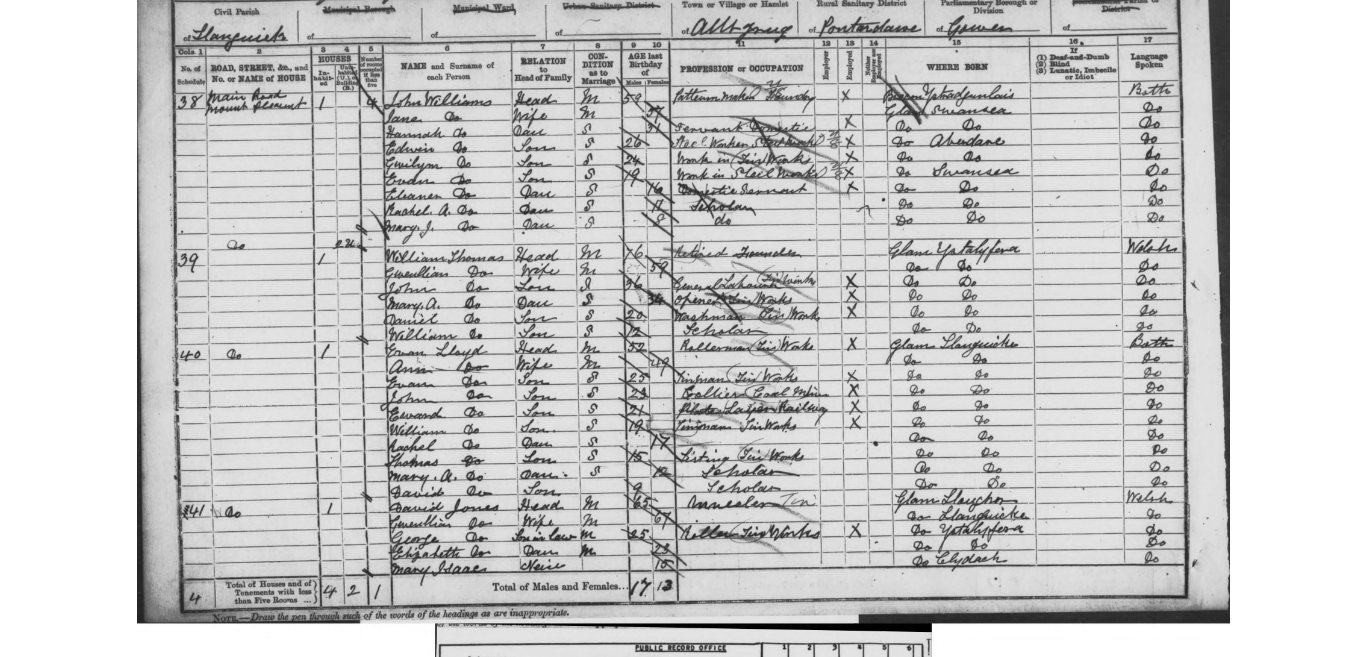 Civil Parish
Municipal Borough
Municipal Ward
Urban Sanitary District
Town or Village or Hamlet
Rural Sanitary District
Parliamentary Borough or Division
District
of Llanguick of of of of of Pontardawe of Gower of
Cols. 1 2 3 4 5 6 7 8 9 10 11 12 13 14 15 16 17
No. of Schedule
ROAD, STREET, &c., and No. or NAME of HOUSE
HOUSES
Inhabited
NAME and Surname of each Person
RELATION to Head of Family
CONDITION as to Marriage
AGE last Birthday of
Males Females
PROFESSION or OCCUPATION
Employer
Employed
WHERE BORN
If (1) Deaf-and-Dumb (2) Blind (3) Lunatic, Imbecile or Idiot
Language Spoken
38 Main Road 1 4 John Williams Head M 59 Pattern maker Foundry X Brecon Ystradgunlais Both
Mount Pleasant Jane Do Wife M 57 Glam Swansea Do
Hannah do Dau S 31 Servant Domestic X Do Do Do
Edwin Do Son S 26 X Do Aberdare Do
Gwilym Do Son S 24 Work in Tin Works X Do Do Do
Evan Do Son S 19 Work in Steel Works X Do Swansea Do
Eleanor Do Dau S 16 Domestic Servant X Do Do Do
Rachel A. Do Dau S 11 Scholar Do Do Do
Mary J. Do Dau S 8 do Do Do Do
Do
39 1 William Thomas Head M 76 Retired Founder Glam Ystalyfera Welsh
Gwenllian Do Wife M 59 Do Do Do
John Do Son S 36 General Labourer Tinworks X Do Do Do
Mary A. Do Dau S 34 Opener Tin Works X Do Do Do
Daniel Do Son S 20 Washman Tin Work X Do Do Do
William Do Son 12 Scholar Do Do Do
40 Do 1 Evan Lloyd Head M 52 Rollerman Tin Works X Glam Llanguicke Both
Ann Do Wife M 49 Do Do Do
Evan Do Son S 25 Tinman Tin Works X Do Do Do
John Do Son S 23 Collier Coal Mine X Do Do Do
Edward Do Son S 21 Layer Railway X Do Do Do
William Do Son S 19 Tinman Tin Works X Do Do Do
Rachel Do Dau S 17 Do Do Do
Thomas Do Son S 15 Tin Works Do Do Do
Mary A. Do Dau S 12 Scholar Do Do Do
David Do Son 9 Scholar Do Do Do
241 Do 1 David Jones Head M 65 Annealer Tin Glam Llaughor Welsh
Gwenllian Do Wife M 67 Do Llanguicke Do
George Do Son in Law M 25 Roller Tin Works X Do Ystalyfera Do
Elizabeth Do Dau M 23 Do Do Do
Mary Isaac Neice 15 Do Clydach Do
4 Total of Houses and of Tenements with less than Five Rooms ... 4 2 1 Total of Males and Females... 17 13
NOTE.—Draw the pen through such of the words of the headings as are inappropriate.
PUBLIC RECORD OFFICE
1 2 3 4 5 6